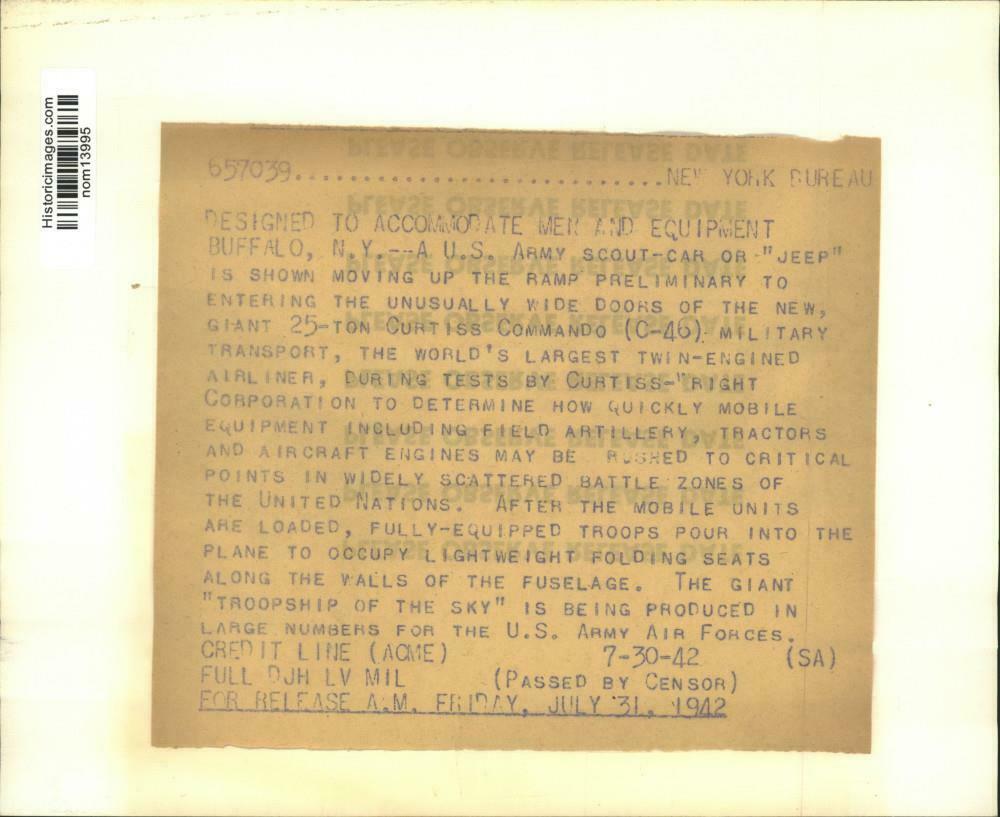 Historicimages.com
nom13995
657039..............................NEW YORK BUREAU
DESIGNED TO ACCOMMODATE MEN AND EQUIPMENT
BUFFALO, N.Y.--A U.S. ARMY SCOUT-CAR OR "JEEP"
IS SHOWN MOVING UP THE RAMP PRELIMINARY TO
ENTERING THE UNUSUALLY WIDE DOORS OF THE NEW,
GIANT 25-TON CURTISS COMMANDO (C-46) MILITARY
TRANSPORT, THE WORLD'S LARGEST TWIN-ENGINED
AIRLINER, DURING TESTS BY CURTISS-WRIGHT
CORPORATION TO DETERMINE HOW QUICKLY MOBILE
EQUIPMENT INCLUDING FIELD ARTILLERY, TRACTORS
AND AIRCRAFT ENGINES MAY BE RUSHED TO CRITICAL
POINTS IN WIDELY SCATTERED BATTLE ZONES OF
THE UNITED NATIONS. AFTER THE MOBILE UNITS
ARE LOADED, FULLY-EQUIPPED TROOPS POUR INTO THE
PLANE TO OCCUPY LIGHTWEIGHT FOLDING SEATS
ALONG THE WALLS OF THE FUSELAGE. THE GIANT
"TROOPSHIP OF THE SKY" IS BEING PRODUCED IN
LARGE NUMBERS FOR THE U.S. ARMY AIR FORCES.
CREDIT LINE (ACME) 7-30-42 (SA)
FULL DJH LV MIL (PASSED BY CENSOR)
FOR RELEASE A.M. FRIDAY, JULY 31, 1942
PLEASE OBSERVE RELEASE DATE
PLEASE OBSERVE RELEASE DATE
PLEASE OBSERVE RELEASE DATE
PLEASE OBSERVE RELEASE DATE
PLEASE OBSERVE RELEASE DATE
PLEASE OBSERVE RELEASE DATE
PLEASE OBSERVE RELEASE DATE
PLEASE OBSERVE RELEASE DATE